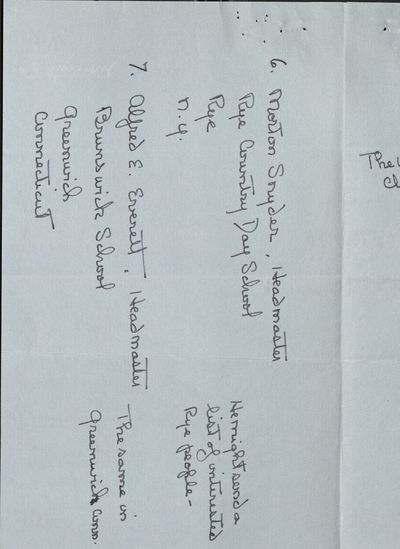 6. Morton Snyder, Headmaster
Rye Country Day School
Rye
N.Y.
He might send a
list of interested
Rye people-
7. Alfred E. Everett, Headmaster
Brunswick School
Greenwich
Connecticut
The same in
Greenwich Conn.